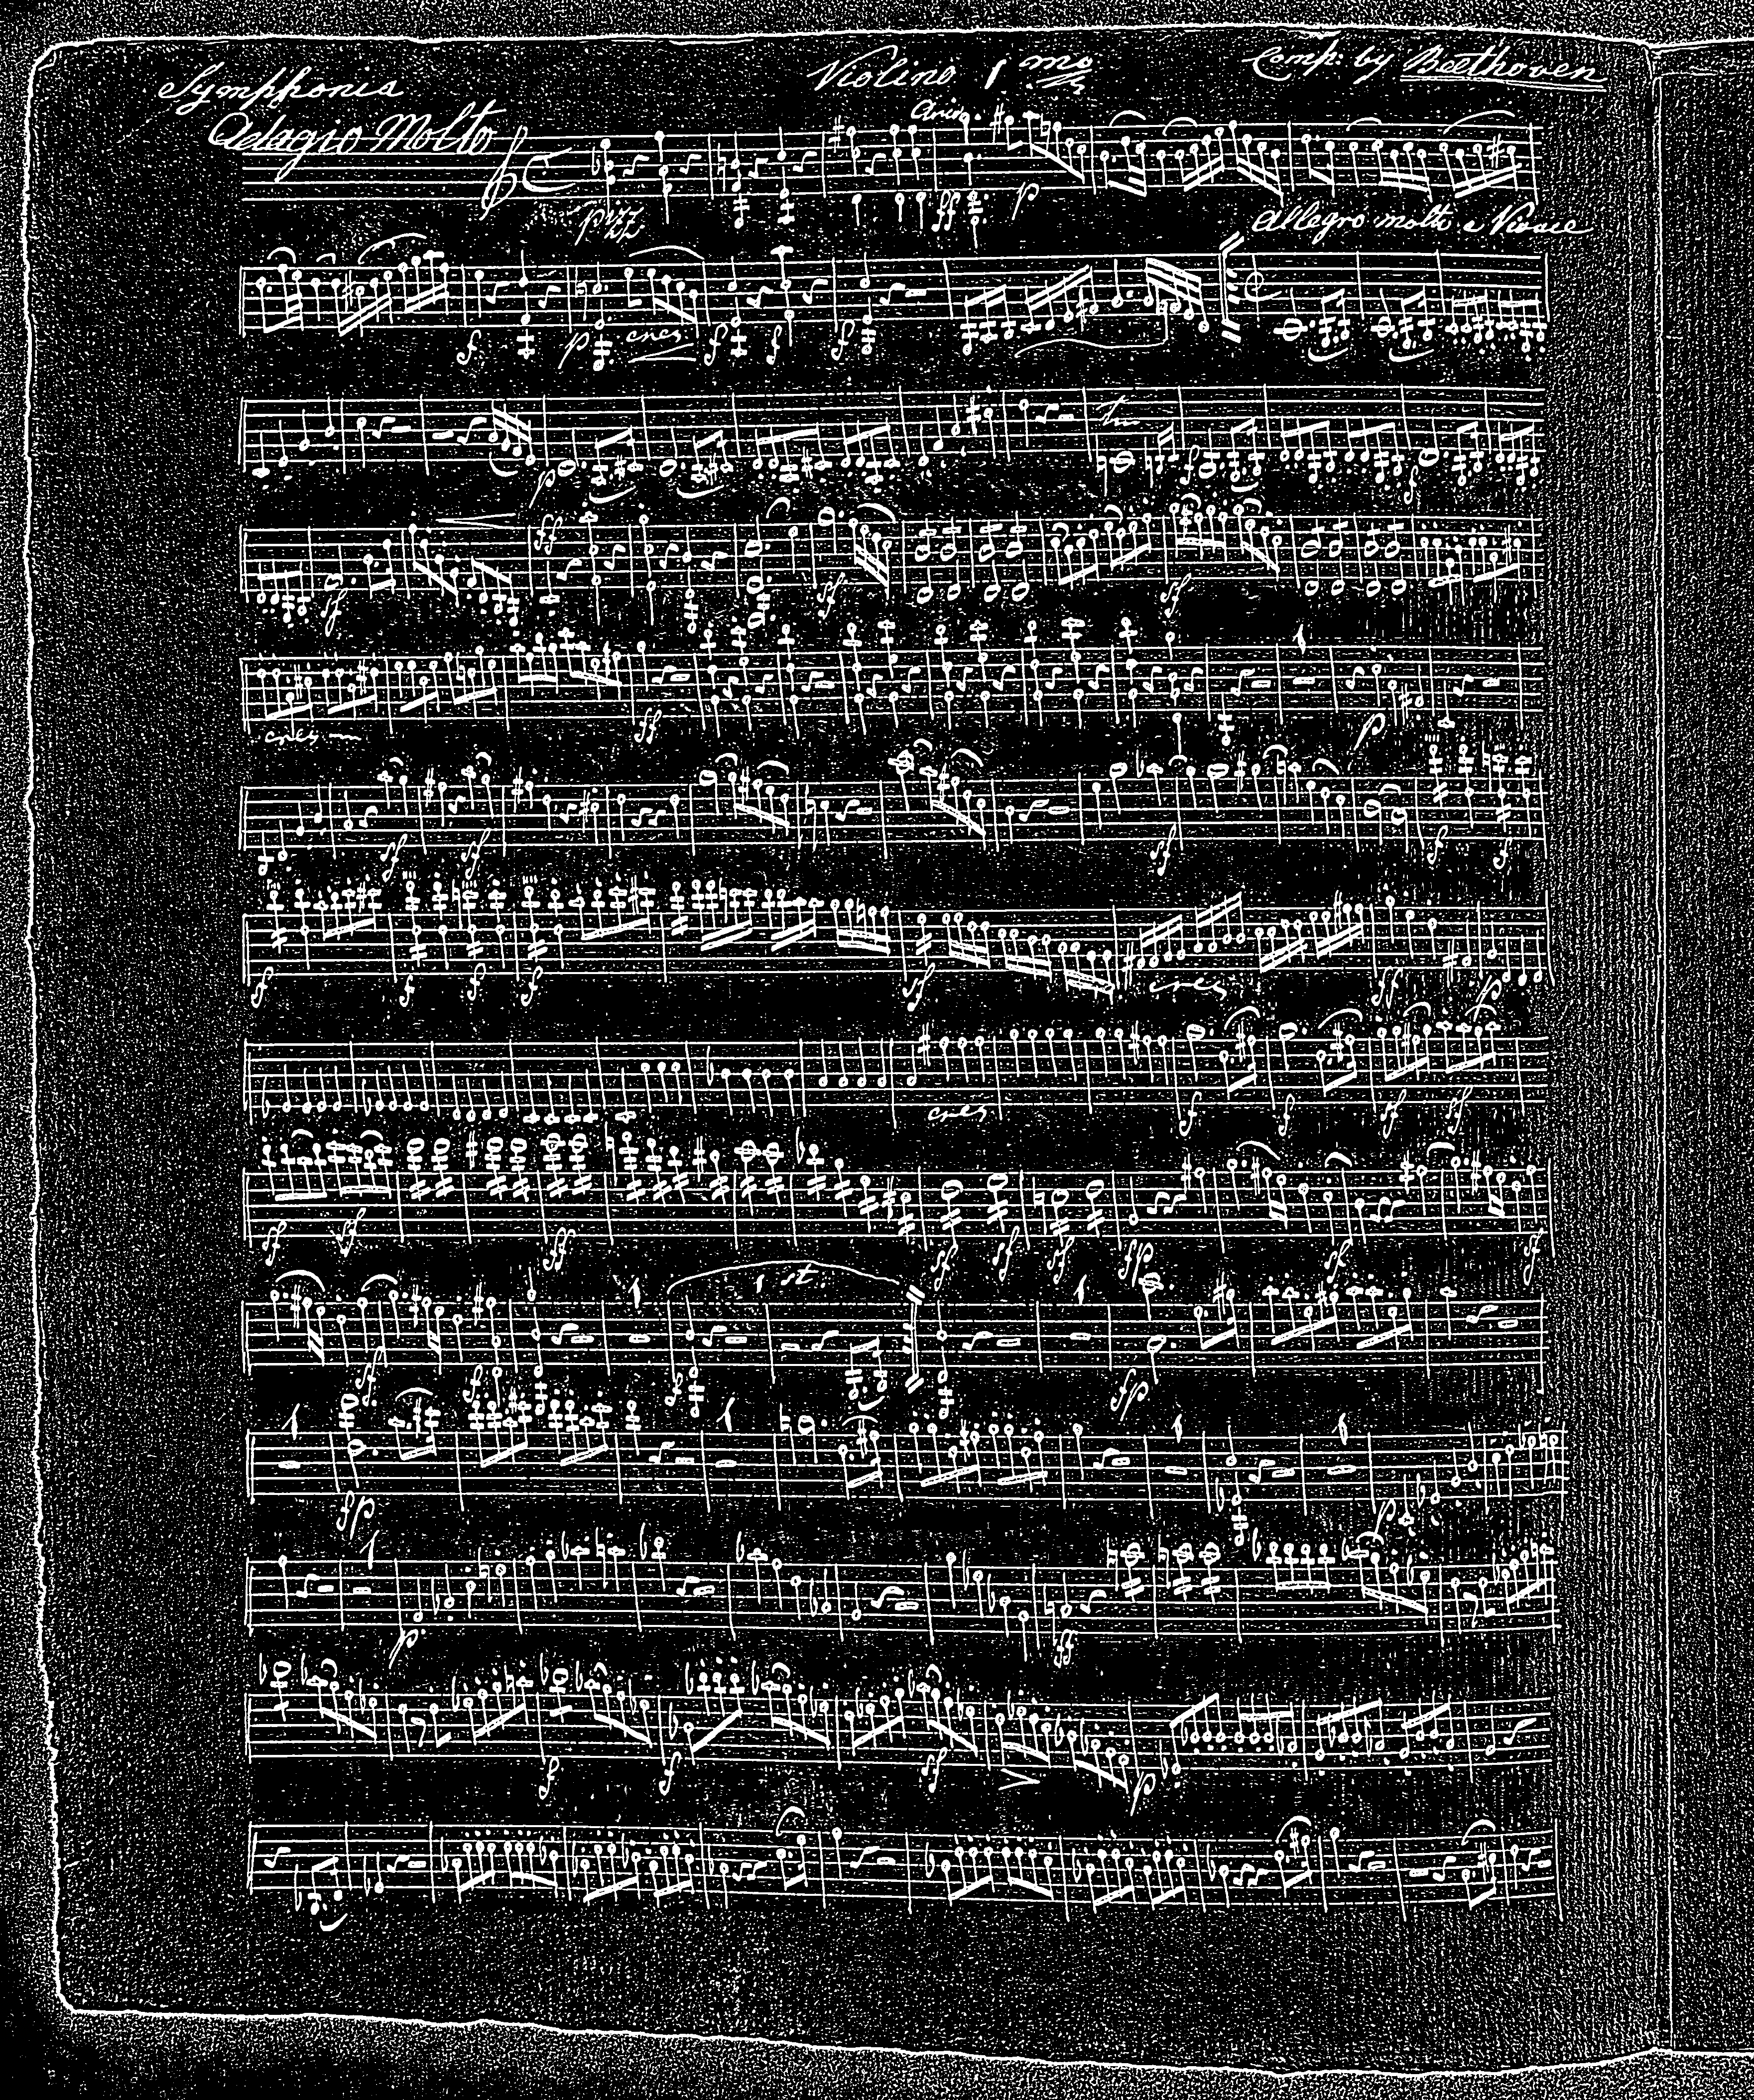 Symphonia Violino 1mo Comp: by Beethoven
Adagio Molto
Arco
pizz ff p
Allegro molto e Vivace
f p cres f f f
p f f
ff ff ff
cres ff p
ff ff ff f f
f f f f ff cres ff p
cres f f ff ff
ff ff ff ff ff ff fp f f
1 st.
f f f fp
fp p
p ff
f f ff p